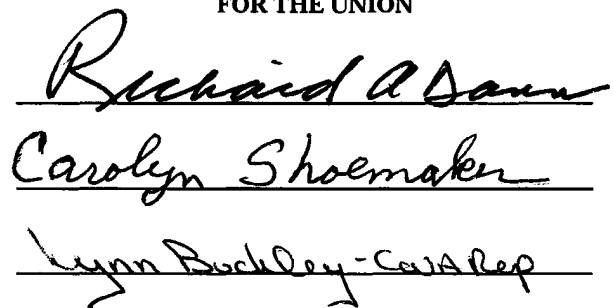 FOR THE UNION
Richard A Dann
Carolyn Shoemaker
Lynn Buckley-CWA Rep